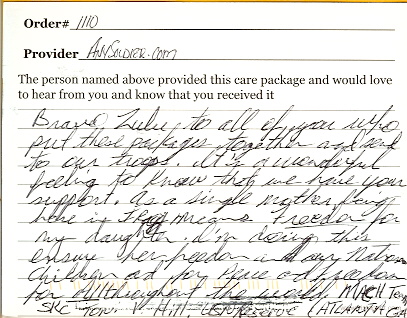 Order# 1110
Provider AnySoldier.com
The person named above provided this care package and would love
to hear from you and know that you received it
Bravo Zulu, to all of you who
put these packages together and send
to our troops. It's a wonderful
feeling to know that we have your
support. As a single mother, being
here in Iraq means Freedom for
my daughter. I'm doing this
ensure her freedom and our Nations
children and for peace and freedom
for all throughout the world.
SKC Toni V. Hill US Reserve (ATLANTA GA